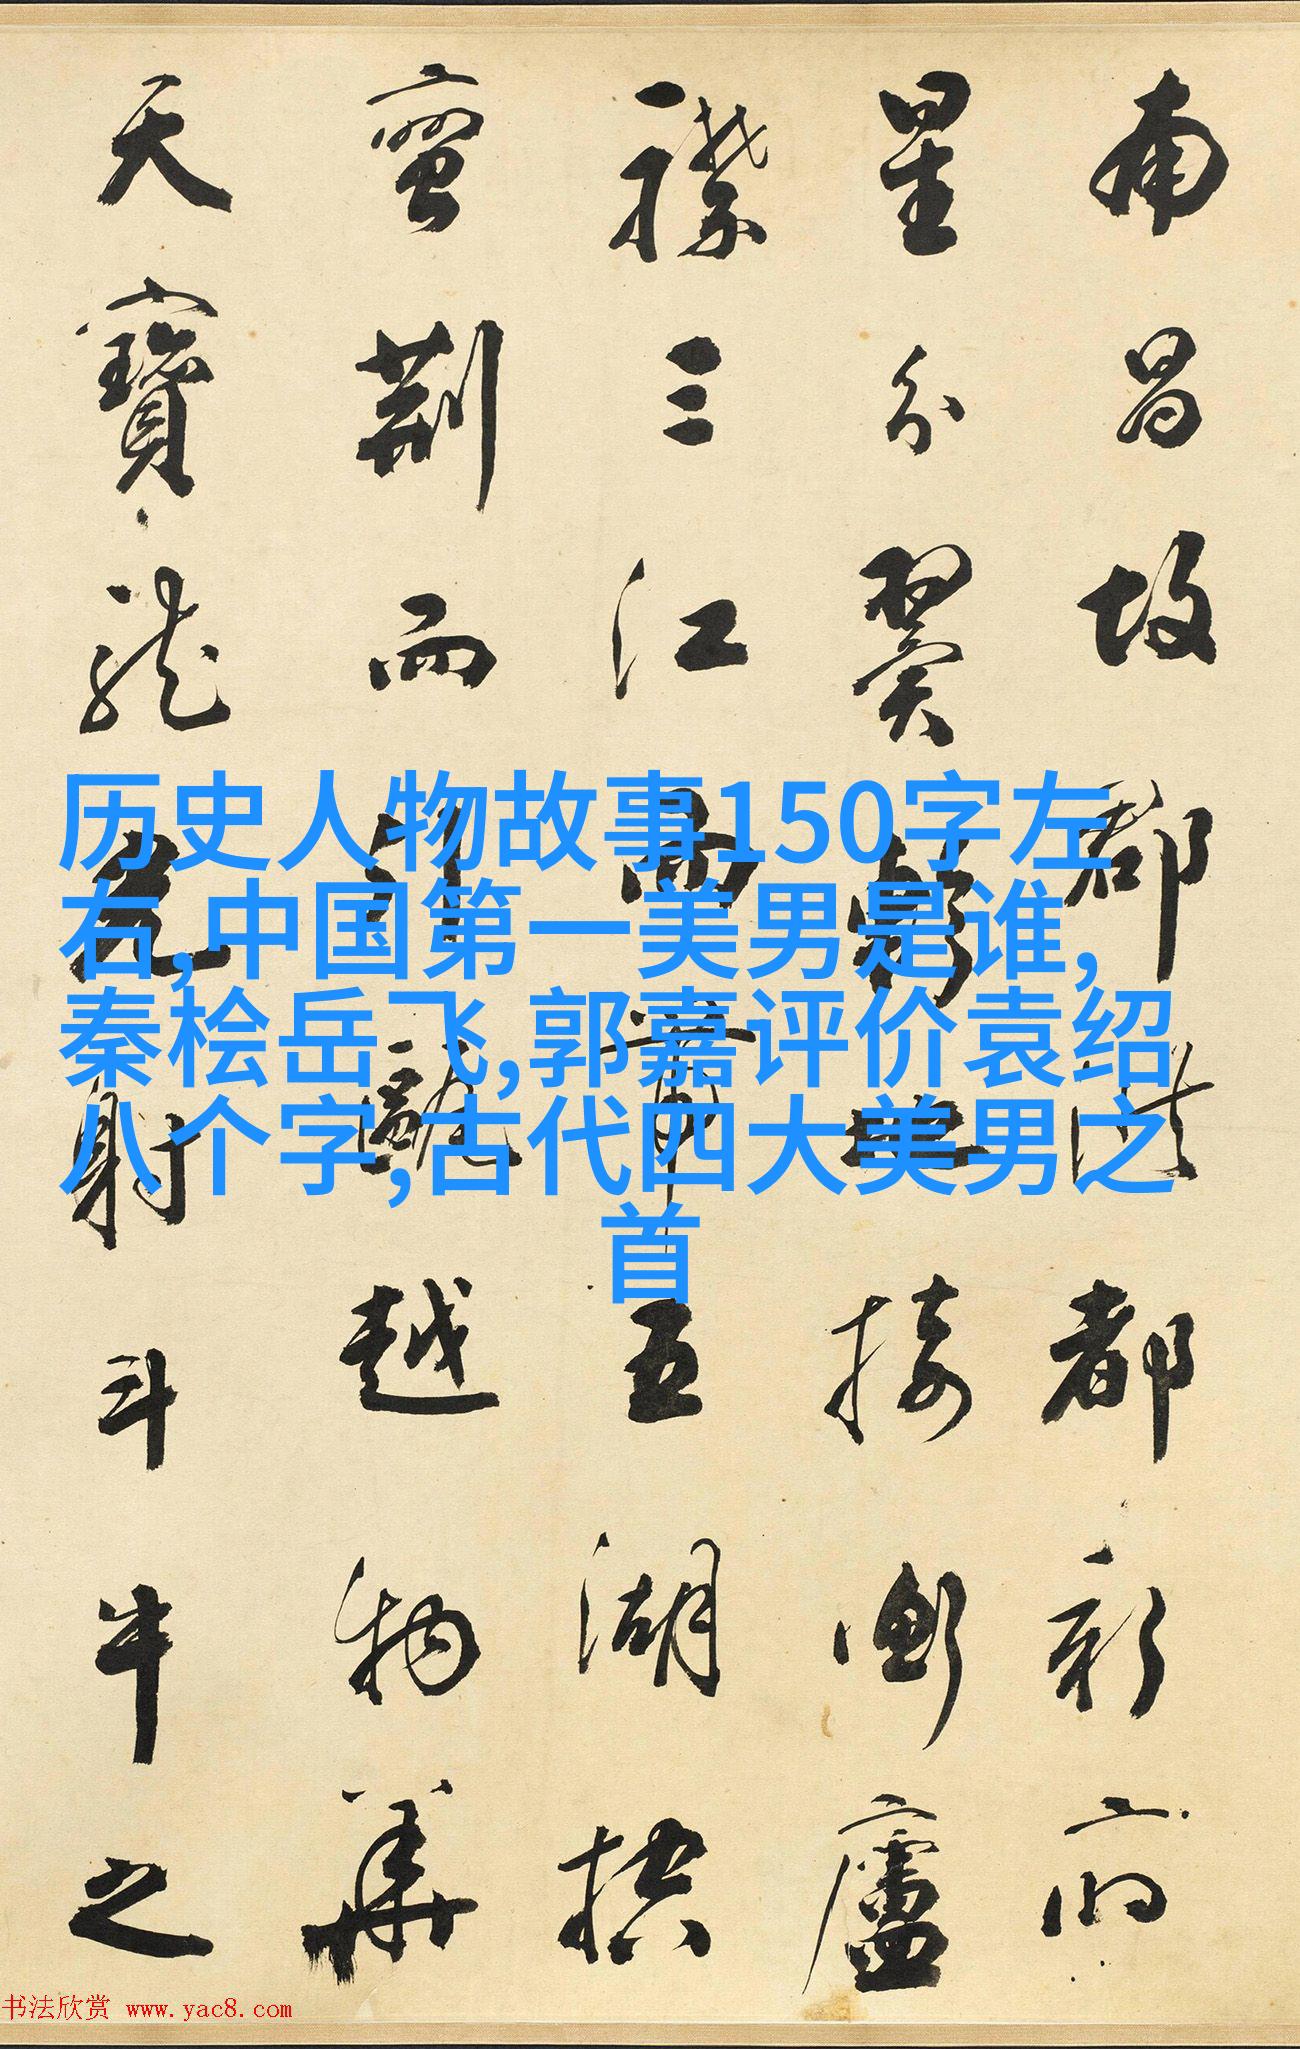 南昌故郡洪都新府
星分翼軫地接衡廬
襟三江而帶五湖控
蠻荊而引甌越物華
天寶龍光射斗牛之
历史人物故事150字左
右,中国第一美男是谁,
秦桧岳飞,郭嘉评价袁绍
八个字,古代四大美男之
首
书法欣赏 www.yac8.com